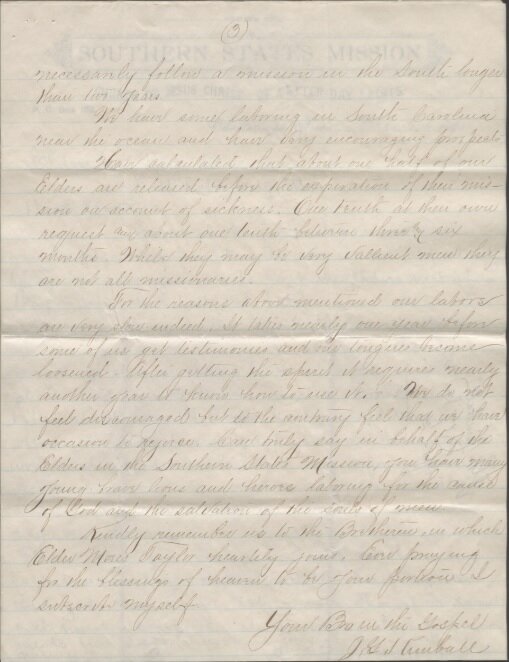 (3)
SOUTHERN STATES MISSION
necessarily follow a mission in the South longer
than two years.
We have some laboring in South Carolina
near the ocean and have very encouraging prospects
Have calculated that about one half of our
Elders are released before the expiration of their mis-
sion on account of sickness. One tenth at their own
request and about one tenth between three & six
months. While they may be very valliant men they
are not all missionaries.
For the reasons above mentioned our labors
are very slow indeed. It takes nearly one year before
some of us get testimonies and our tongues become
loosened. After getting the spirit it requires nearly
another year to know how to use it. We do not
feel discouraged but to the contrary feel that we have
occasion to rejoice. Can truly say in behalf of the
Elders in the Southern States Mission, you have many
young brave lions and heroes laboring for the cause
of God and the salvation of the souls of men.
Kindly remember us to the Brethren, in which
Elder Morris Taylor heartily joins. Ever praying
for the blessings of heaven to be your portion I
subscribe myself
Your Bro in the Gospel
J. G. Kimball